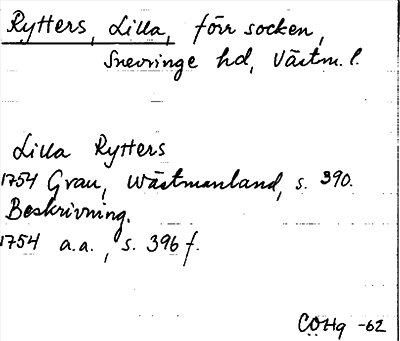 Rytters, Lilla, förr socken,
Snevringe hd, Västm. l.
Lilla Rytters
1754 Grau, Wästmanland, s. 390.
Beskrivning.
1754 a.a., s. 396 f.
CÖHg -62